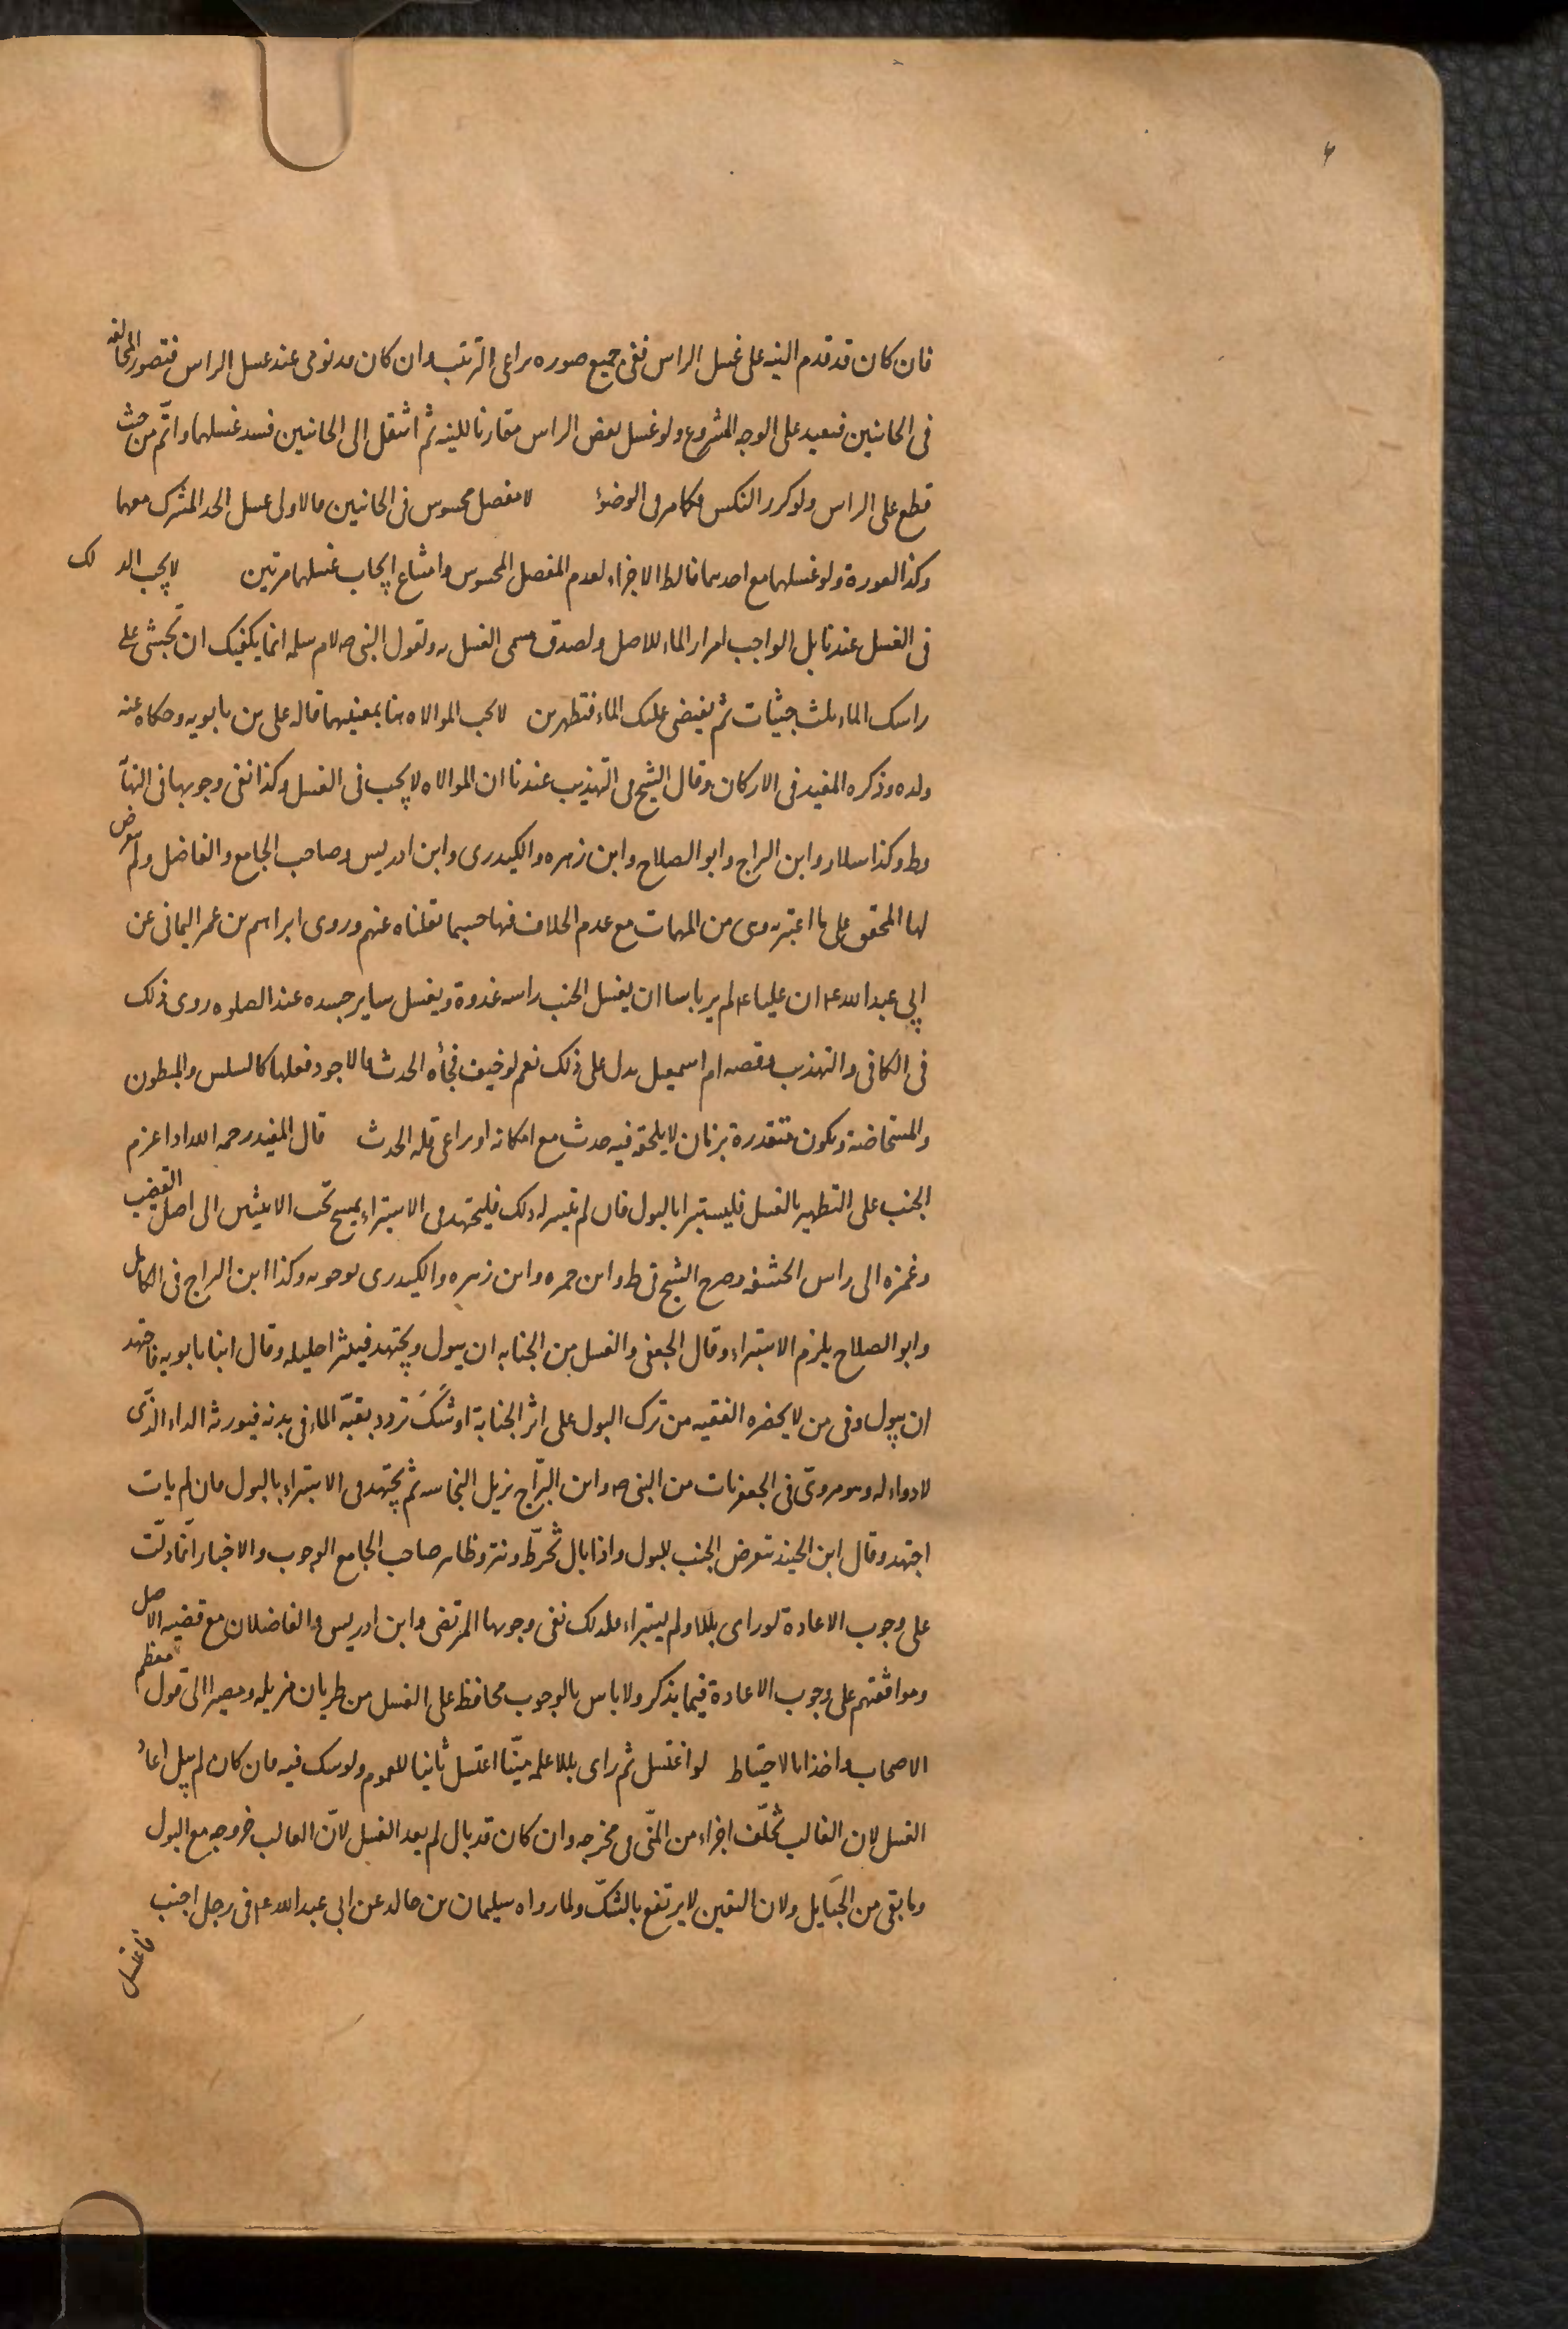 فان كان قد قدم النيه على غسل الراس ففى جميع صوره يراعى الترتيب وان كان قد نوى عند غسل الراس فتصور المخالفه
فى الجانبين فيعيد على الوجه المشروع ولو غسل بعض الراس مقارنا للنيه ثم انتقل الى الجانبين فسد غسلهما واتّم من حيث
قطع على الراس ولو كرر النكس فكما مر فى الوضوء لا مفصل محسوس فى الجانبين فالاولى غسل الحد المشترك معهما
وكذا العورة ولو غسلها مع احدهما فالظ الاجزاء لعدم المفصل المحسوس وامتناع ايجاب غسلها مرتين لا يجب الدلك
فى الغسل عندنا بل الواجب امرار الماء للاصل ولصدق مسمى الغسل به ولقول النبى ص لام سلمه انما يكفيك ان تحثى على
راسك الماء ثلث حثيات ثم يفيضى عليك الماء فتطهرين لا يجب الموالاه هنا بمعنييها قاله على بن بابويه وحكاه عنه
ولده وذكره المفيد فى الاركان وقال الشيخ فى التهذيب عندنا ان الموالاه لا يجب فى الغسل وكذا نفى وجوبها فى النهاّ
وط وكذا سلار وابن البراج وابو الصلاح وابن زهره والكيدرى وابن ادريس وصاحب الجامع والفاضل ولم يعرض
لها المحقق على ما اعتبر وهى من المهمات مع عدم الخلاف فيها حسبما نقلناه عنهم وروى ابراهيم بن عمر اليمانى عن
ابي عبد الله ع ان عليا ع لم ير باسا ان يغسل الجنب راسه غدوة ويغسل ساير جسده عند الصلوه روى ذلك
فى الكافى والتهذيب وقصه ام اسمعيل يدل على ذلك نعم لو خيف فجأه الحدث فالاجود فعلها كالسلس والمبطون
والمستحاضة ويكون متقدرة بزمان لا يلحق فيه حدث مع امكانه او يراعى قله الحدث قال المفيد رحمه الله اذا عزم
الجنب على التطهير بالغسل فليستبرا بالبول فان لم يتيسر له ذلك فليجتهد فى الاستبراء يمسح تحت الانثيين الى اصل القضيب
وغمزه الى راس الحشفه وصرح الشيخ فى ط وابن حمزه وابن زهره والكيدرى بوجوبه وكذا ابن البراج فى الكامل
وابو الصلاح يلزم الاستبراء وقال الجعفى والغسل من الجنابه ان يبول ويجتهد فينثر احليله وقال ابنا بابويه فاجتهد
ان يبول وفى من لا يحضره الفقيه من ترك البول على اثر الجنابة اوشَكَ تردد بقيّه الماء فى بدنه فيورثه الداء الذّى
لا دواء له وهو مروىّ فى الجعفريات من النبى ص وابن البرّاج يزيل النجاسه ثم يجتهد فى الاستبراء بالبول فان لم يات
اجتهد وقال ابن الجنيد يتعرض الجنب للبول واذا بال تخرّط ونتر وظاهر صاحب الجامع الوجوب والاخبار انّما دلّت
على وجوب الاعادة لو راى بللا ولم يستبراء فلذلك نفى وجوبها المرتضى وابن ادريس والفاضلان مع قضيه الاصل
وموافقتهم على وجوب الاعادة فيما يذكر ولا باس بالوجوب محافظ على الغسل من طريان مزيله ومصيرا الى قول معظم
الاصحاب واخذا بالاحتياط لو اغتسل ثم راى بللا علمه ميّنا اغتسل ثانيا للعموم ولو شك فيه فان كان لم يبل اعاد
الغسل لان الغالب تخلّف اجزاء من المنّى فى مخرجه وان كان قد بال لم يعد الغسل لانّ الغالب خروجه مع البول
وما بقى من الحبَايل ولان اليقين لا يرتفع بالشكّ ولما رواه سليمان بن خالد عن ابى عبد الله ع فى رجل اجنب
فاغتسل